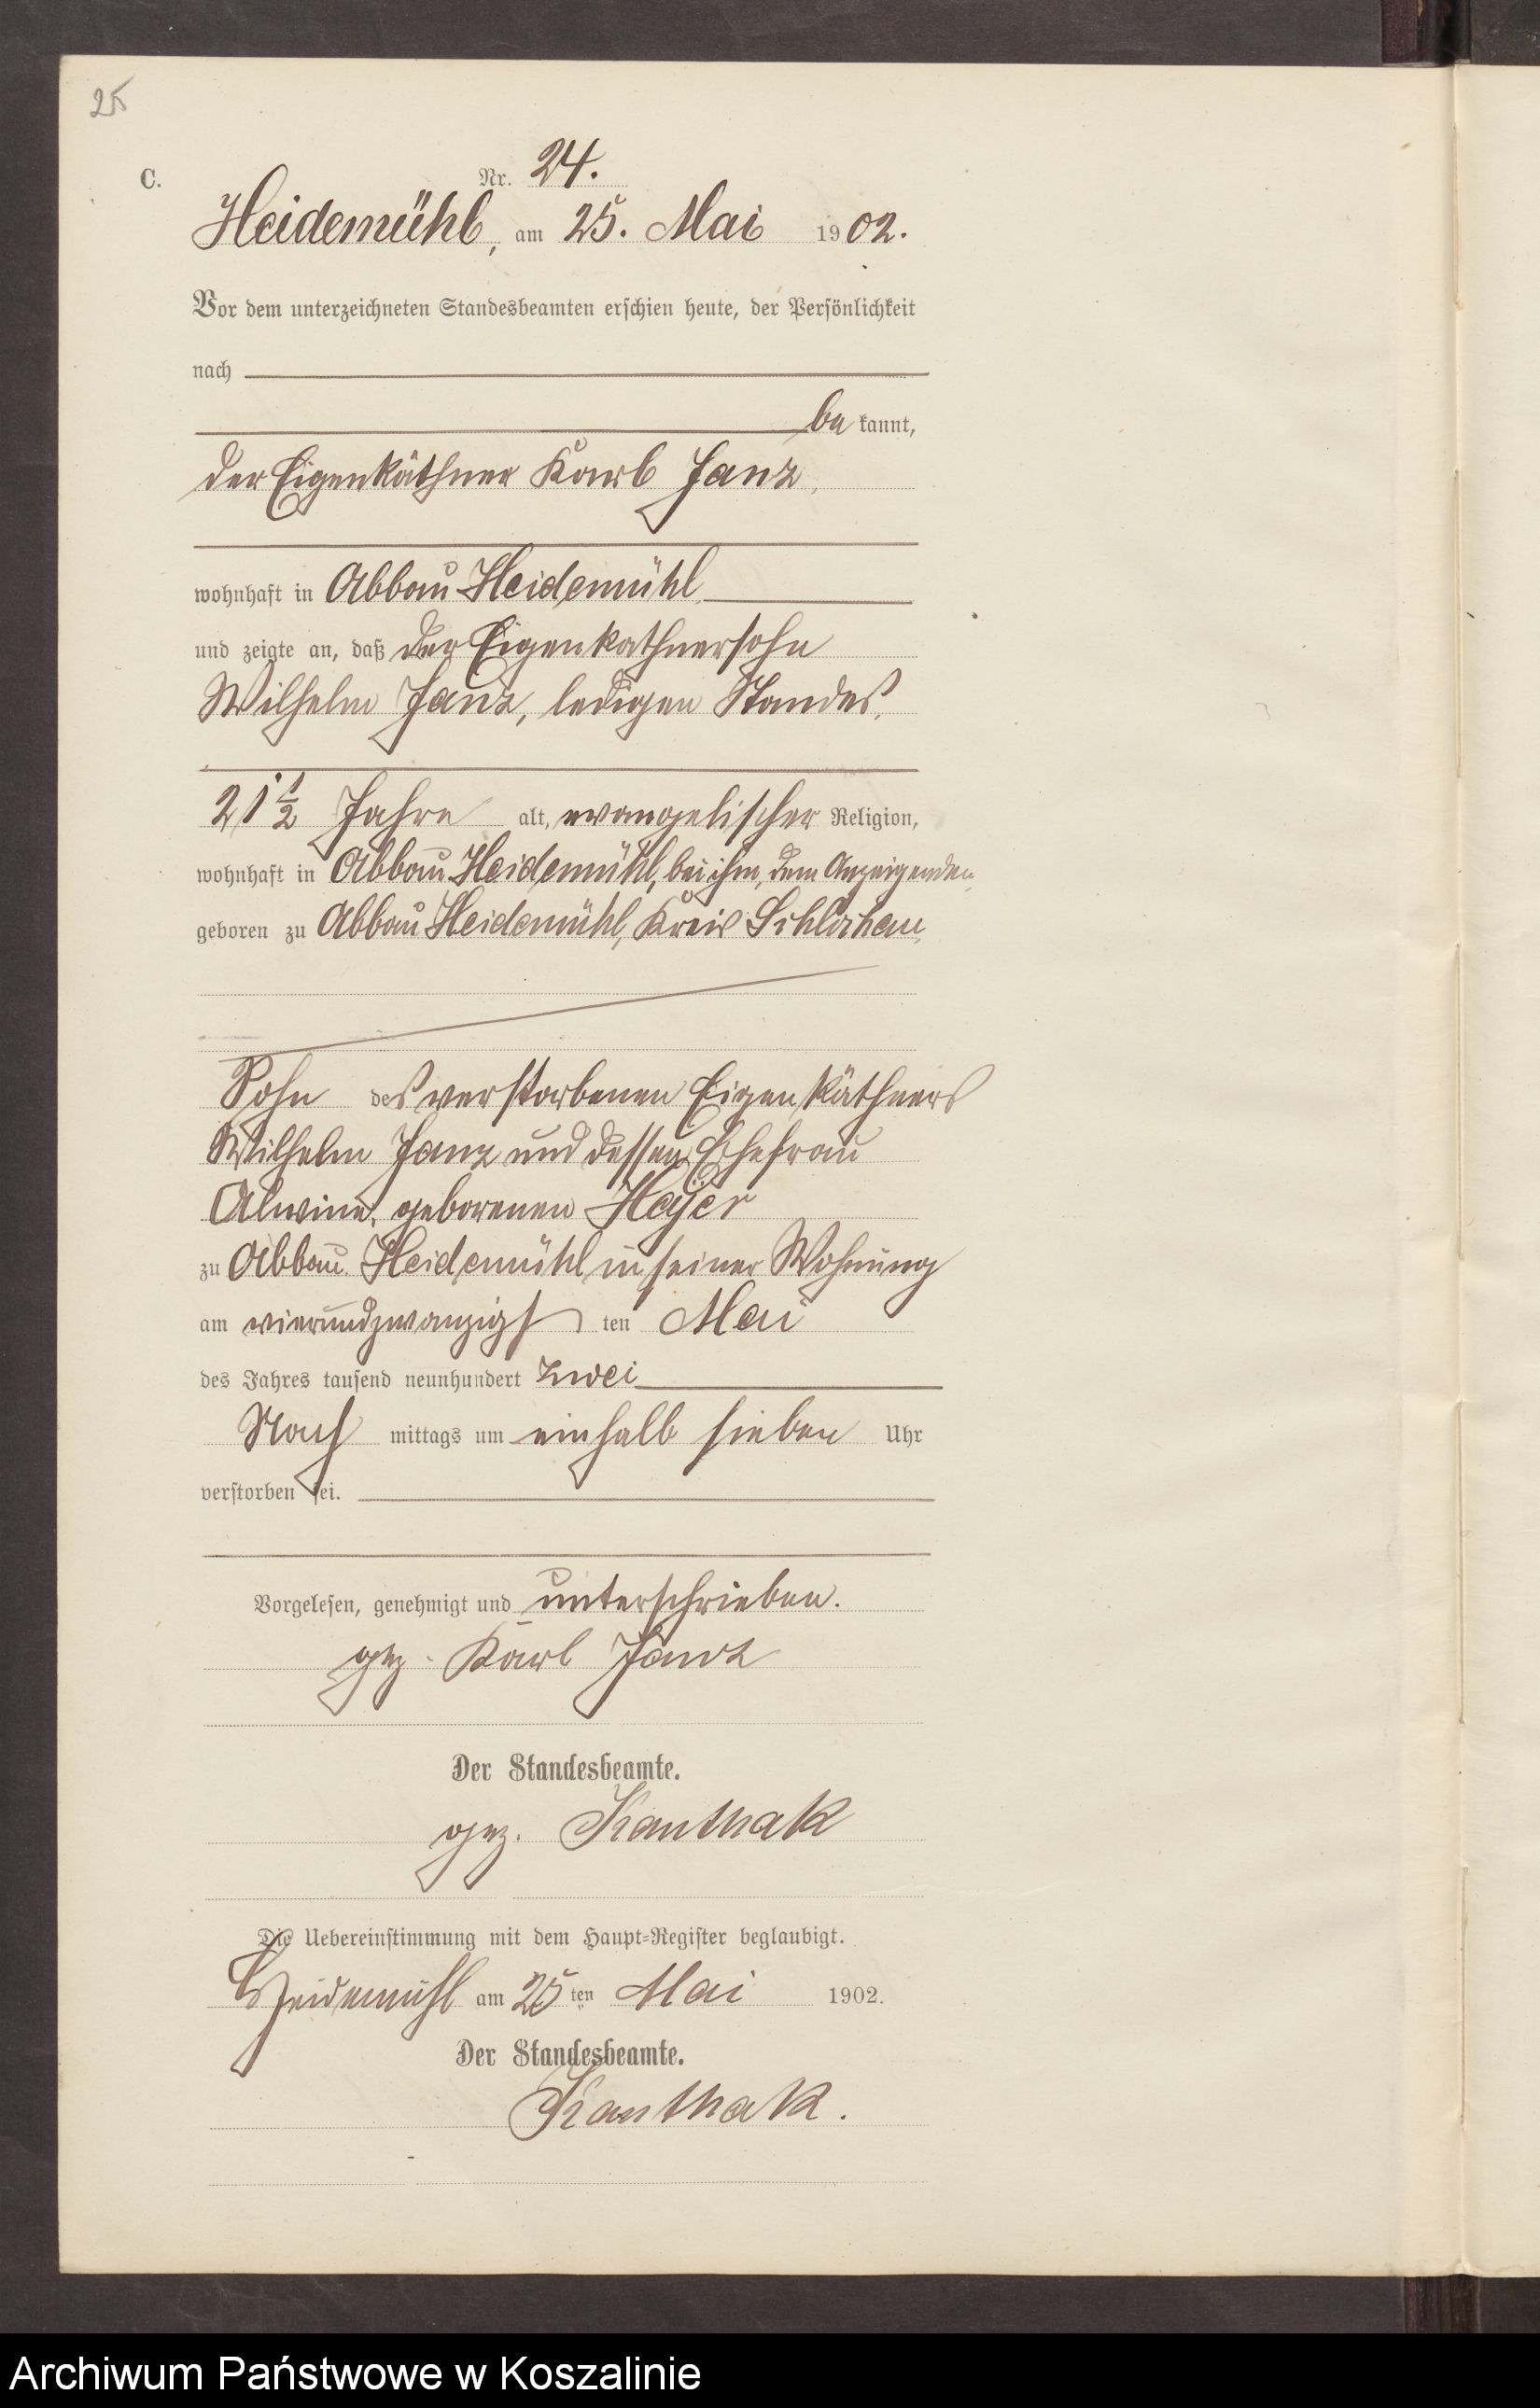 25
C.
Nr. 24.
Heidemühl, am 25. Mai 1902.
Vor dem unterzeichneten Standesbeamten erschien heute, der Persönlichkeit
nach
be kannt,
der Eigenkäthner Karl Janz,
wohnhaft in Abbau Heidemühl
und zeigte an, daß der Eigenkathnersohn
Wilhelm Janz, ledigen Standes,
21 1/2 Jahre alt, evangelischer Religion,
wohnhaft in Abbau Heidemühl, bei ihm, dem Anzeigenden,
geboren zu Abbau Heidemühl, Kreis Schlochau,
Sohn des verstorbenen Eigenkäthners
Wilhelm Janz und dessen Ehefrau
Alwine, geborenen Heÿer
zu Abbau Heidemühl in seiner Wohnung
am vierundzwanzigsten Mai
des Jahres tausend neunhundert zwei
Nach mittags um einhalb sieben Uhr
verstorben sei.
Vorgelesen, genehmigt und unterschrieben.
gez. Karl Janz
Der Standesbeamte.
gez. Kanthak
Die Uebereinstimmung mit dem Haupt-Register beglaubigt.
Heidemühl am 25ten Mai 1902.
Der Standesbeamte.
Kanthak.
Archiwum Państwowe w Koszalinie